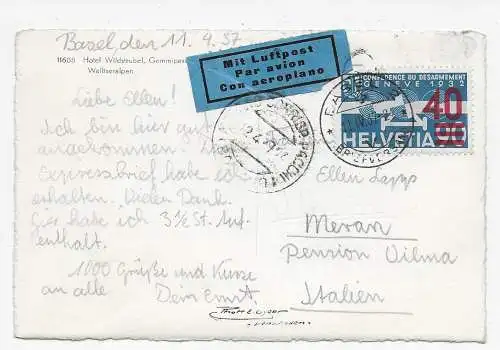 Basel, den 11. 4. 37
11688 Hotel Wildstrubel, Gemmipass
Walliseralpen
Mit Luftpost
Par avion
Con aeroplano
CONFERENCE DU DESARMEMENT
GENEVE 1932
40
90
HELVETIA
BRIEFVERS
Liebe Ellen!
Ich bin hier gut
angekommen. Den
Expressbrief habe ich
erhalten. Vielen Dank.
Hier habe ich 3½ St. Auf-
enthalt.
1000 Grüße und Küsse
an alle Dein Ernst.
Ellen
Meran
Pension Vilma
Italien